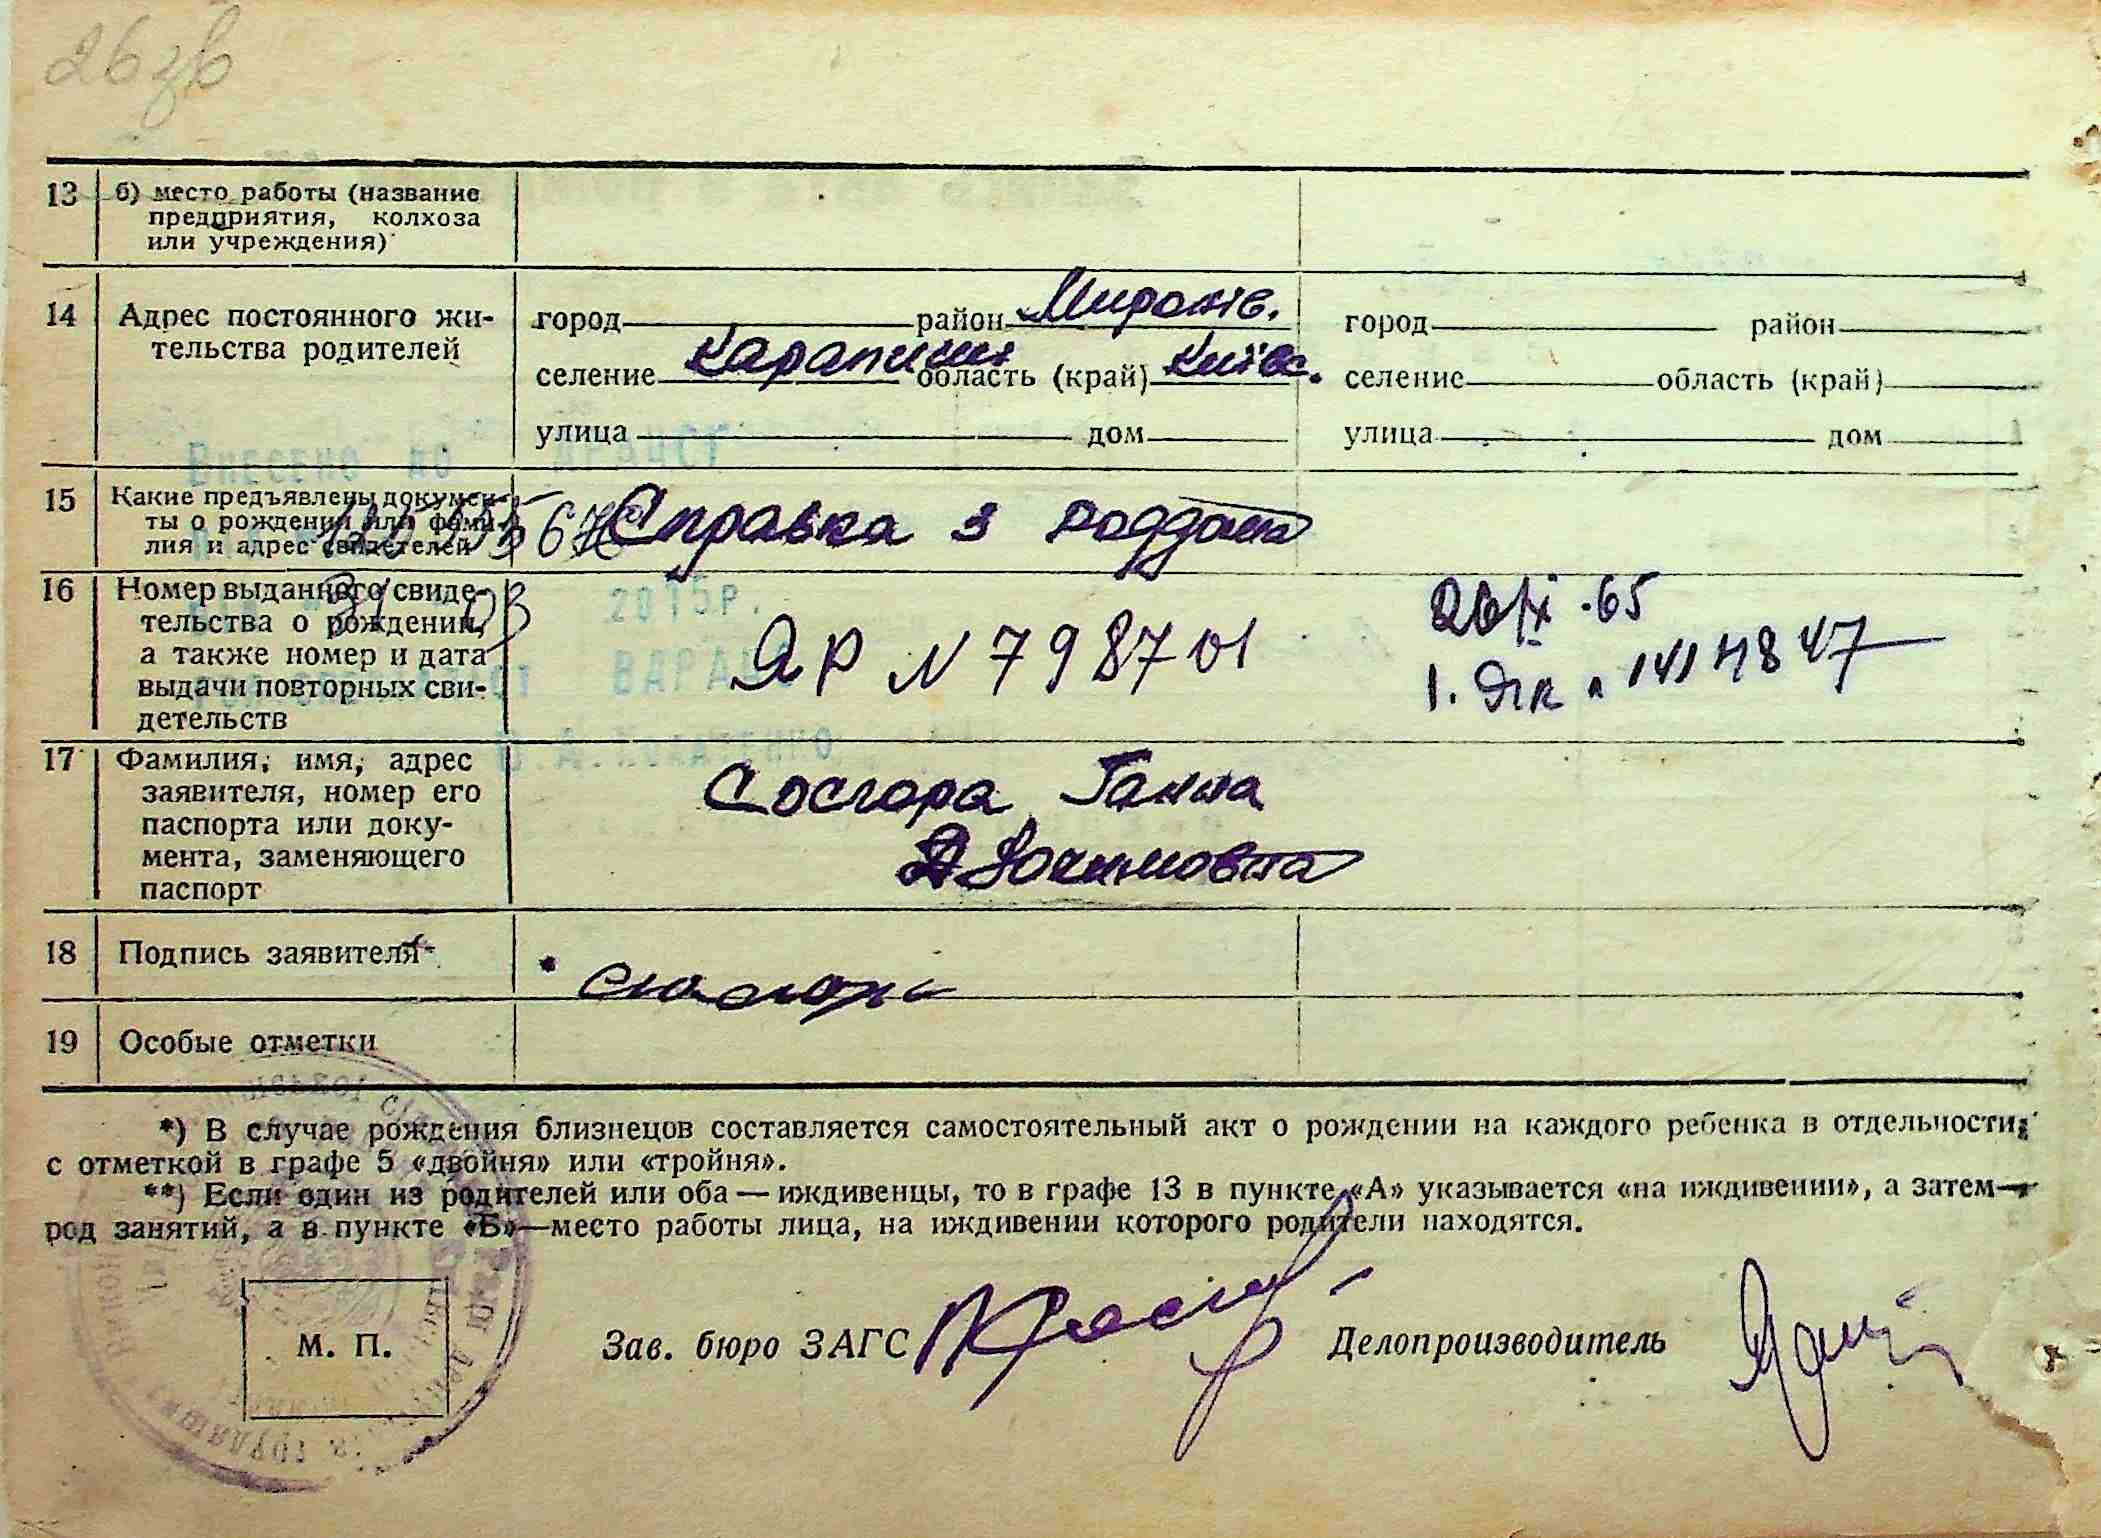 26 зв
13 б) место работы (название
предприятия, колхоза
или учреждения)
14 Адрес постоянного жи-
тельства родителей
город район Миронів. город район
селение Карапиши область (край) Київс. селение область (край)
улица дом улица дом
Внесено до ДРАЦСГ
15 Какие предъявлены докумен-
ты о рождении или фами-
лия и адрес свидетелей
Справка з роддома
16 Номер выданного свиде-
тельства о рождении,
а также номер и дата
выдачи повторных сви-
детельств
2015р.
ЯР N 798701
26/IX .65
17 Фамилия, имя, адрес
заявителя, номер его
паспорта или доку-
мента, заменяющего
паспорт
Ганна
18 Подпись заявителя
19 Особые отметки
*) В случае рождения близнецов составляется самостоятельный акт о рождении на каждого ребенка в отдельности;
с отметкой в графе 5 «двойня» или «тройня».
**) Если один из родителей или оба — иждивенцы, то в графе 13 в пункте «А» указывается «на иждивении», а затем—
род занятий, а в пункте «Б»—место работы лица, на иждивении которого родители находятся.
М. П.
Зав. бюро ЗАГС Делопроизводитель